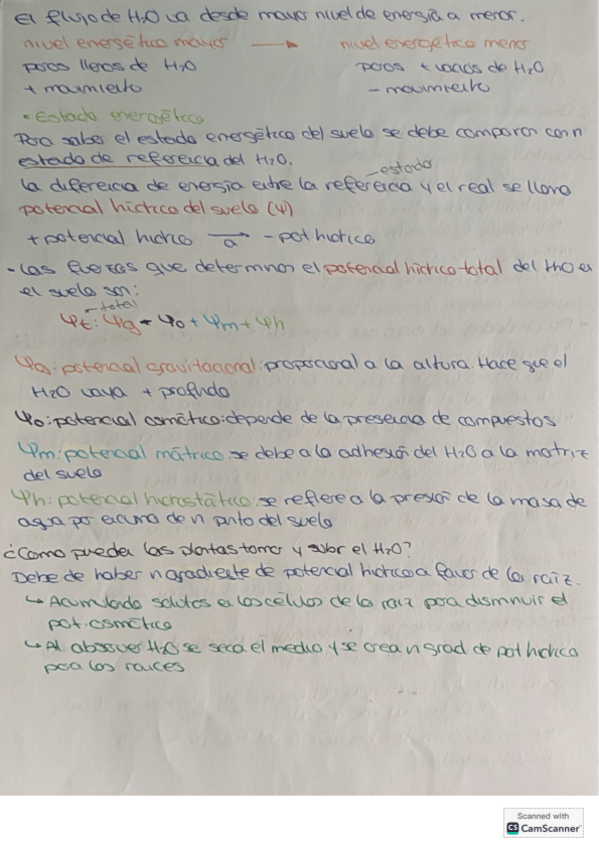 El flujo de H2O va desde mayor nivel de energía a menor.
nivel energético mayor → nivel energético menor
poros llenos de H2O poros + vacios de H2O
+ movimiento - movimiento
• Estado energético
Para saber el estado energético del suelo se debe comparar con n
estado de referencia del H2O.
- estado
La diferencia de energía entre la referencia y el real se llama
potencial hídrico del suelo (Ψ)
+ potencial hidrico → a - pot hidrico
- Las fuerzas que determinan el potencial hídrico total del H2O en
el suelo son:
- total
Ψt: Ψg + Ψo + Ψm + Ψh
Ψg: potencial gravitacional: proporcional a la altura. Hace que el
H2O vaya + profundo
Ψo: potencial osmótico: depende de la presencia de compuestos
Ψm: potencial mátrico: se debe a la adhesión del H2O a la matriz
del suelo
Ψh: potencial hidrostático: se refiere a la presión de la masa de
agua por encima de n punto del suelo
¿Como pueden las plantas tomar y subir el H2O?
Debe de haber n gradiente de potencial hidrico a favor de la raíz.
↳ Acumulando solutos en las células de la raiz para disminuir el
pot. osmótico
↳ Al absorver H2O se seca el medio y se crea n grad de pot hidrico
para las raices
Scanned with
CS CamScanner